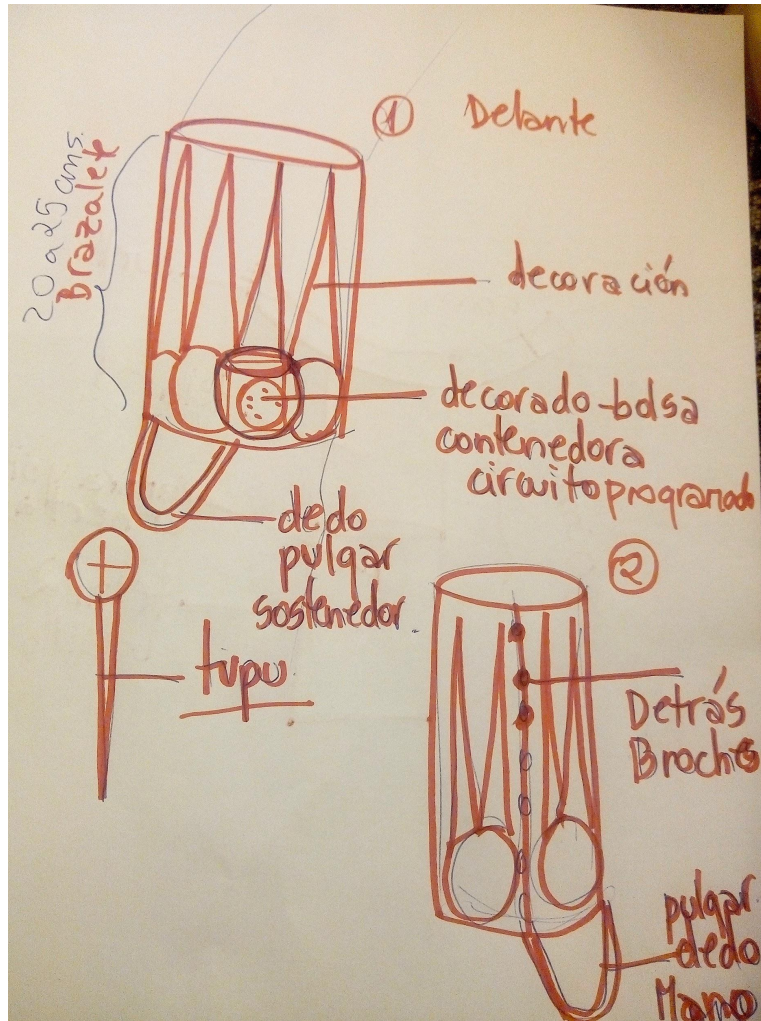 ① Delante
20 a 25 cms.
Brazalete
decoración
decorado-bolsa
contenedora
circuito programado
dedo
pulgar
sostenedor.
tupu
②
Detrás
Broches
pulgar
dedo
Mano